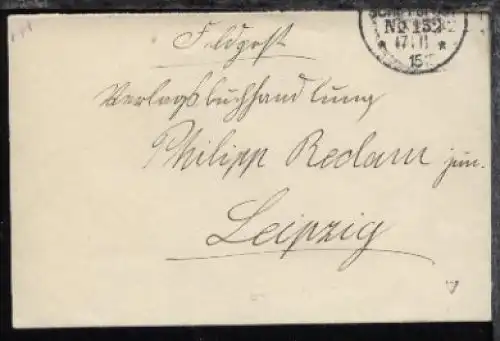 No 152
* 17 11 *
15
Feldpost
Verlagsbuchhandlung
Philipp Reclam jun.
Leipzig